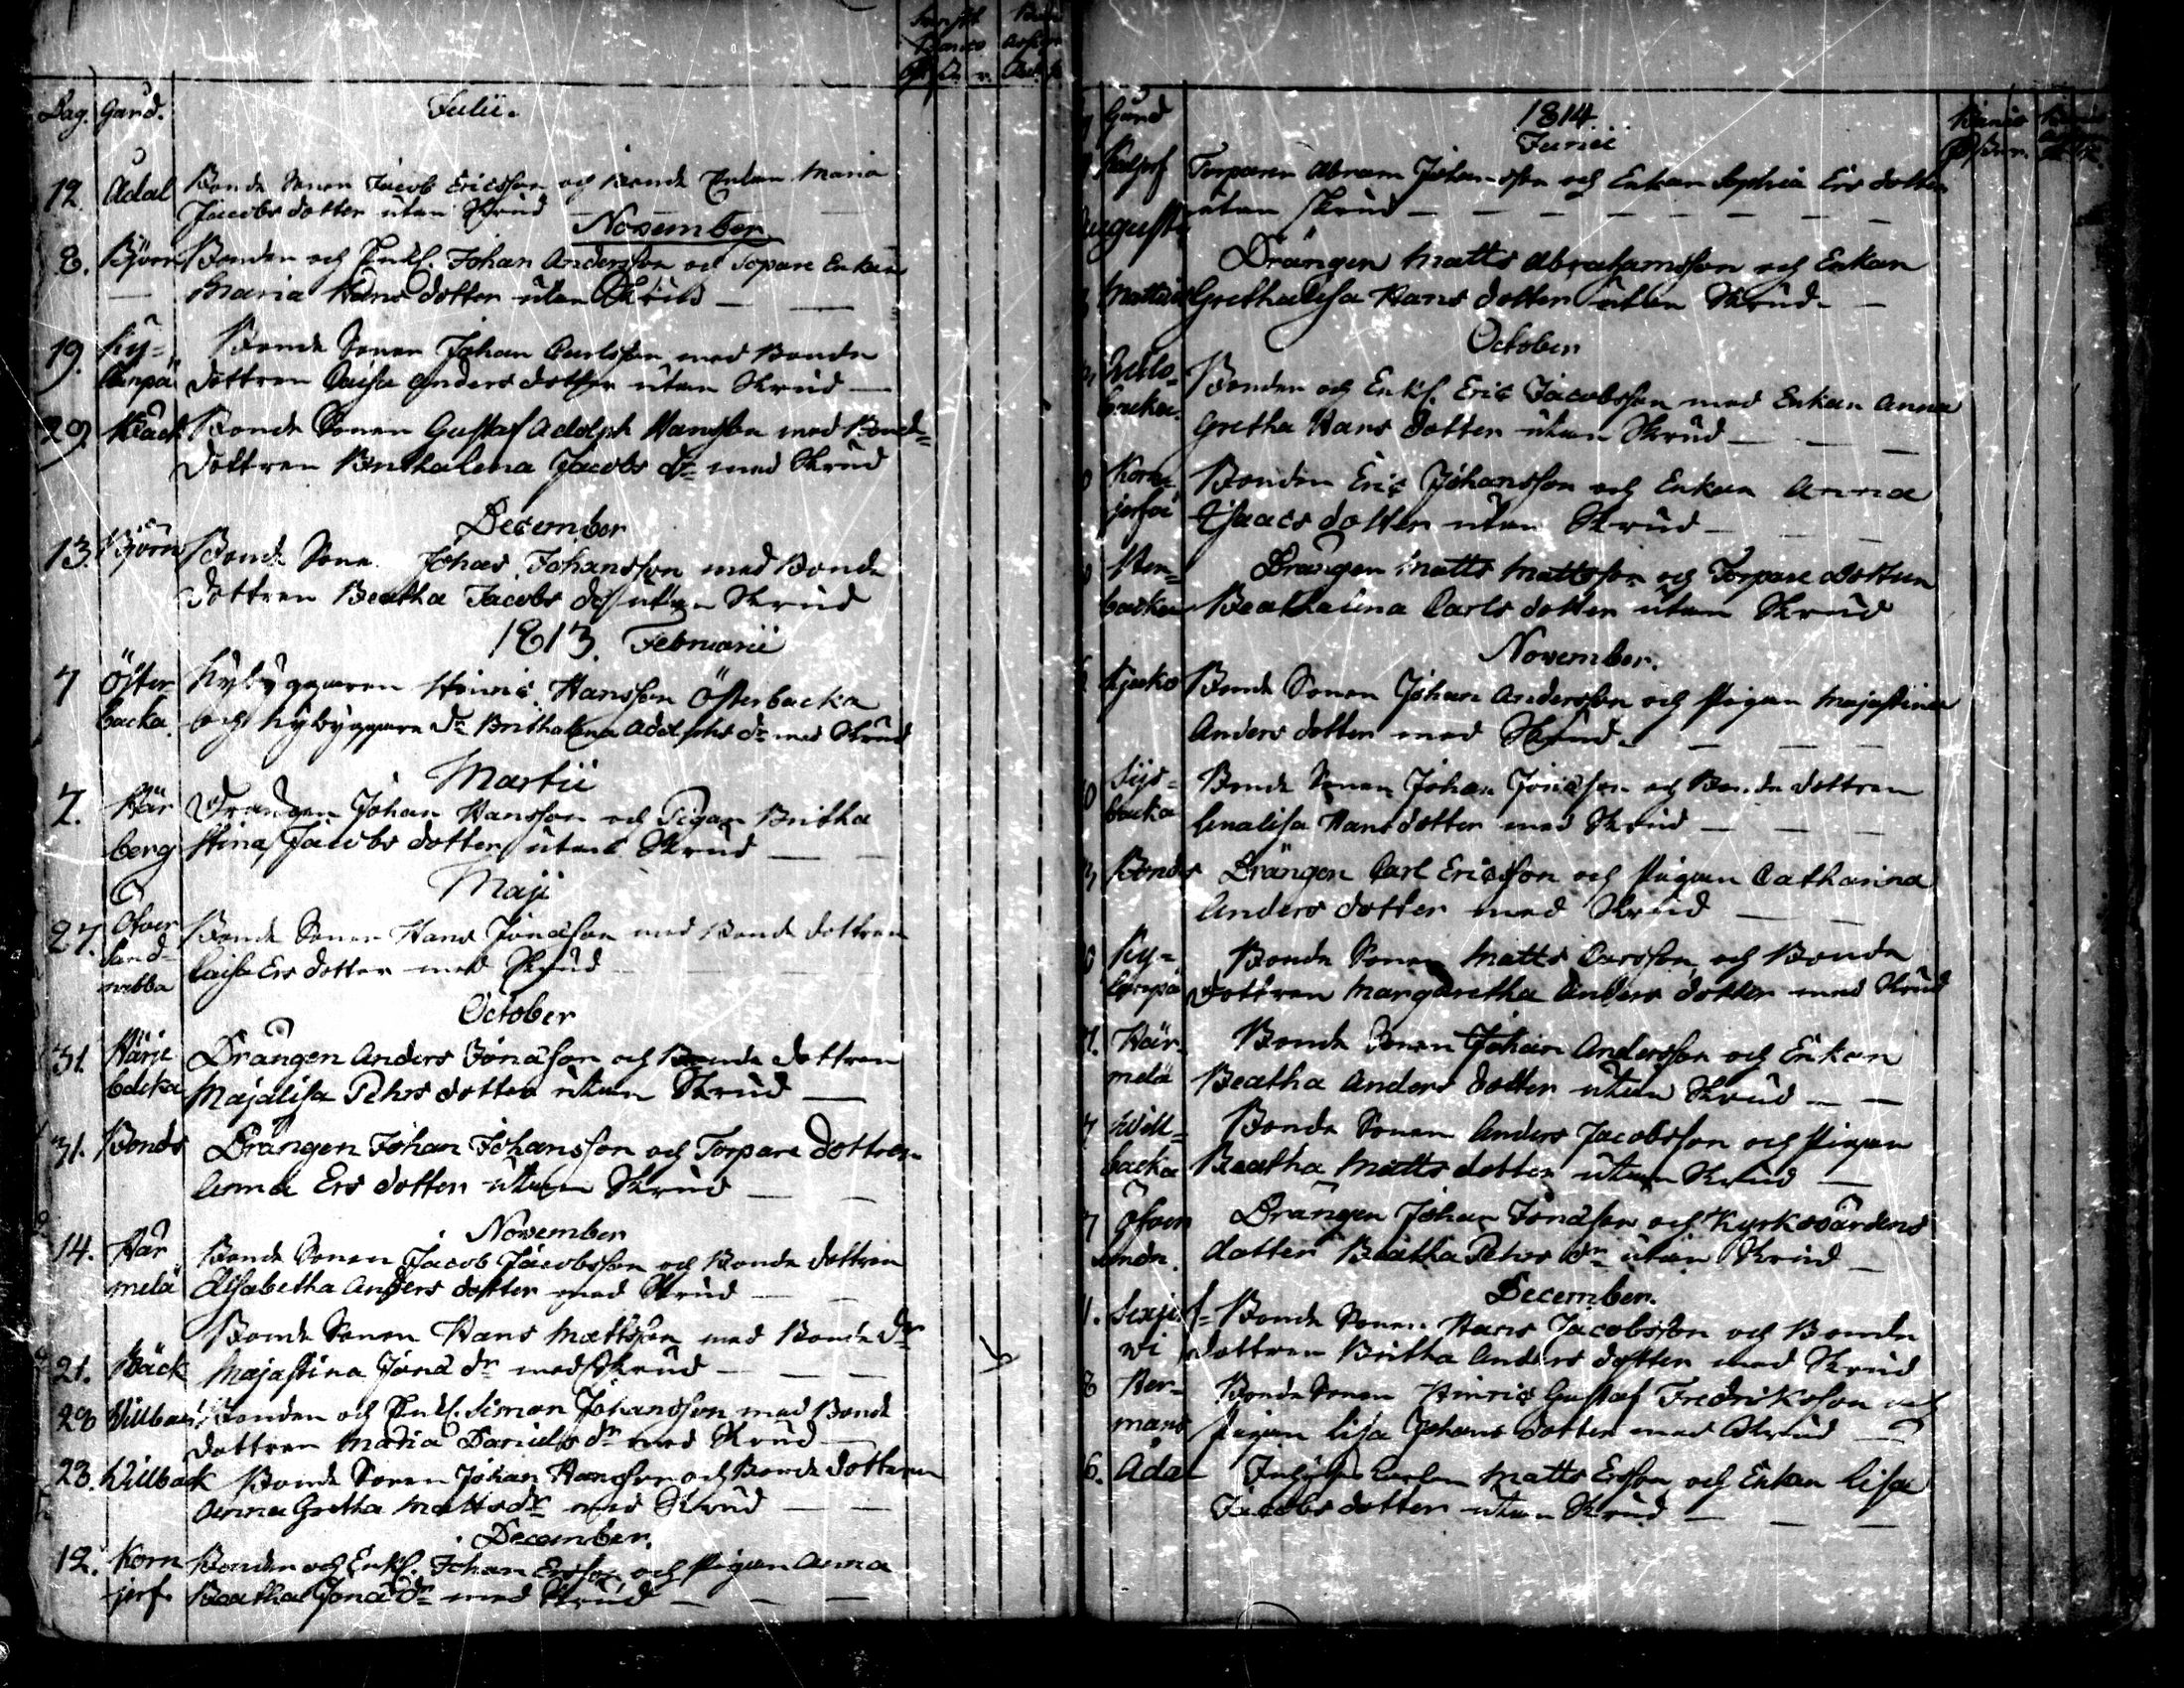 Dag. Gård. Julii.
12. Ådal Bonde Sonen Jacob Ericsson och Bonde Enkan Maria
Jacobs dotter utan Skrud
November
8. Björn Bonden och Enkl. Johan Andersson och Torpare Enkan
Maria Hans dotter utan Skrud
19. Ky= Bonde Sonen Johan Carlsson med Bonde
dottren Caisa Anders dotter utan Skrud
29. Bäck Bonde Sonen Gustaf Adolph Hansson med Bond=
dottren Brithalena Jacobs dr med Skrud
December
13. Björn Bonde Sonen Johan Johansson med Bonde
dottren Beatha Jacobs dr utan Skrud
1813. Februarii
7 Öster= Nybyggaren Hinric Hansson Österbacka
backa. och Nybyggare dr Brithalena Adolphs dr med Skrud
Martii
7. Kär Drängen Johan Hansson och Pigan Britha
berg Stina Jacobs dotter utan Skrud
Maji
27. Öfver Bonde Sonen Hans Jonasson med Bonde dottren
Sand= Caisa Ers dotter med Skrud
nabba
October
31. Härje Drängen Anders Jonasson och Bonde dottren
backa Majalisa Pehrs dotter utan Skrud
31. Bonds Drängen Johan Johansson och Torpare dottren
Anna Ers dotter utan Skrud
November
14. Här Bonde Sonen Jacob Jacobsson och Bonde dottren
melä Elisabetha Anders dotter med Skrud
Bonde Sonen Hans Mattsson med Bonde dr
21. Bäck Majastina Jona dr med Skrud
28 Willback Bonden och Enkl. Simon Johansson med Bonde
dottren Maria Daniels dr med Skrud
28. Willback Bonde Sonen Johan Hansson och Bonde dottren
Anna Gretha Matts dr med Skrud
December.
12. Korn Bonden och Enkl. Johan Ersson och Pigan Anna
jerf. Beatha Jona dr med Skrud
Gård 1814
Junii
Torparen Abram Johansson och Enkan Sophia Ers dotter
utan Skrud
Augusti
Drängen Matts Abrahamsson och Enkan
Grethalisa Hans dotter utan Skrud
October
Bonden och Enkl. Eric Jacobsson med Enkan Anna
backa. Gretha Hans dotter utan Skrud
Korn= Bonden Eric Johansson och Enkan Anna
Isaacs dotter utan Skrud
Drängen Matts Mattsson och Torpare dottren
backa Beathalena Carls dotter utan Skrud
November.
Bonde Sonen Johan Andersson och Pigan Majastina
Anders dotter med Skrud.
Bonde Sonen Johan Jonasson och Bonde dottren
backa Lenalisa Hans dotter med Skrud
Bonds Drängen Carl Ericsson och Pigan Catharina
Anders dotter med Skrud
Ky= Bonde Sonen Matts Carsson och Bonde
dottren Margaretha Anders dotter med Skrud
Här= Bonde Sonen Johan Andersson och Enkan
melä Beatha Anders dotter utan Skrud
Will= Bonde Sonen Anders Jacobsson och Pigan
backa Beatha Matts dotter utan Skrud
7 Drängen Johan Jonasson och Kyrkovärdens
dotter Beatha Pehrs dr utan Skrud
December.
Bonde Sonen Hans Jacobsson och Bonde
dottren Britha Anders dotter med Skrud
Bonde Sonen Hinric Gustaf Fredriksson och
mans Pigan Lisa Johans dotter med Skrud
6. Ådal Matts Ersson och Enkan Lisa
Jacobs dotter utan Skrud